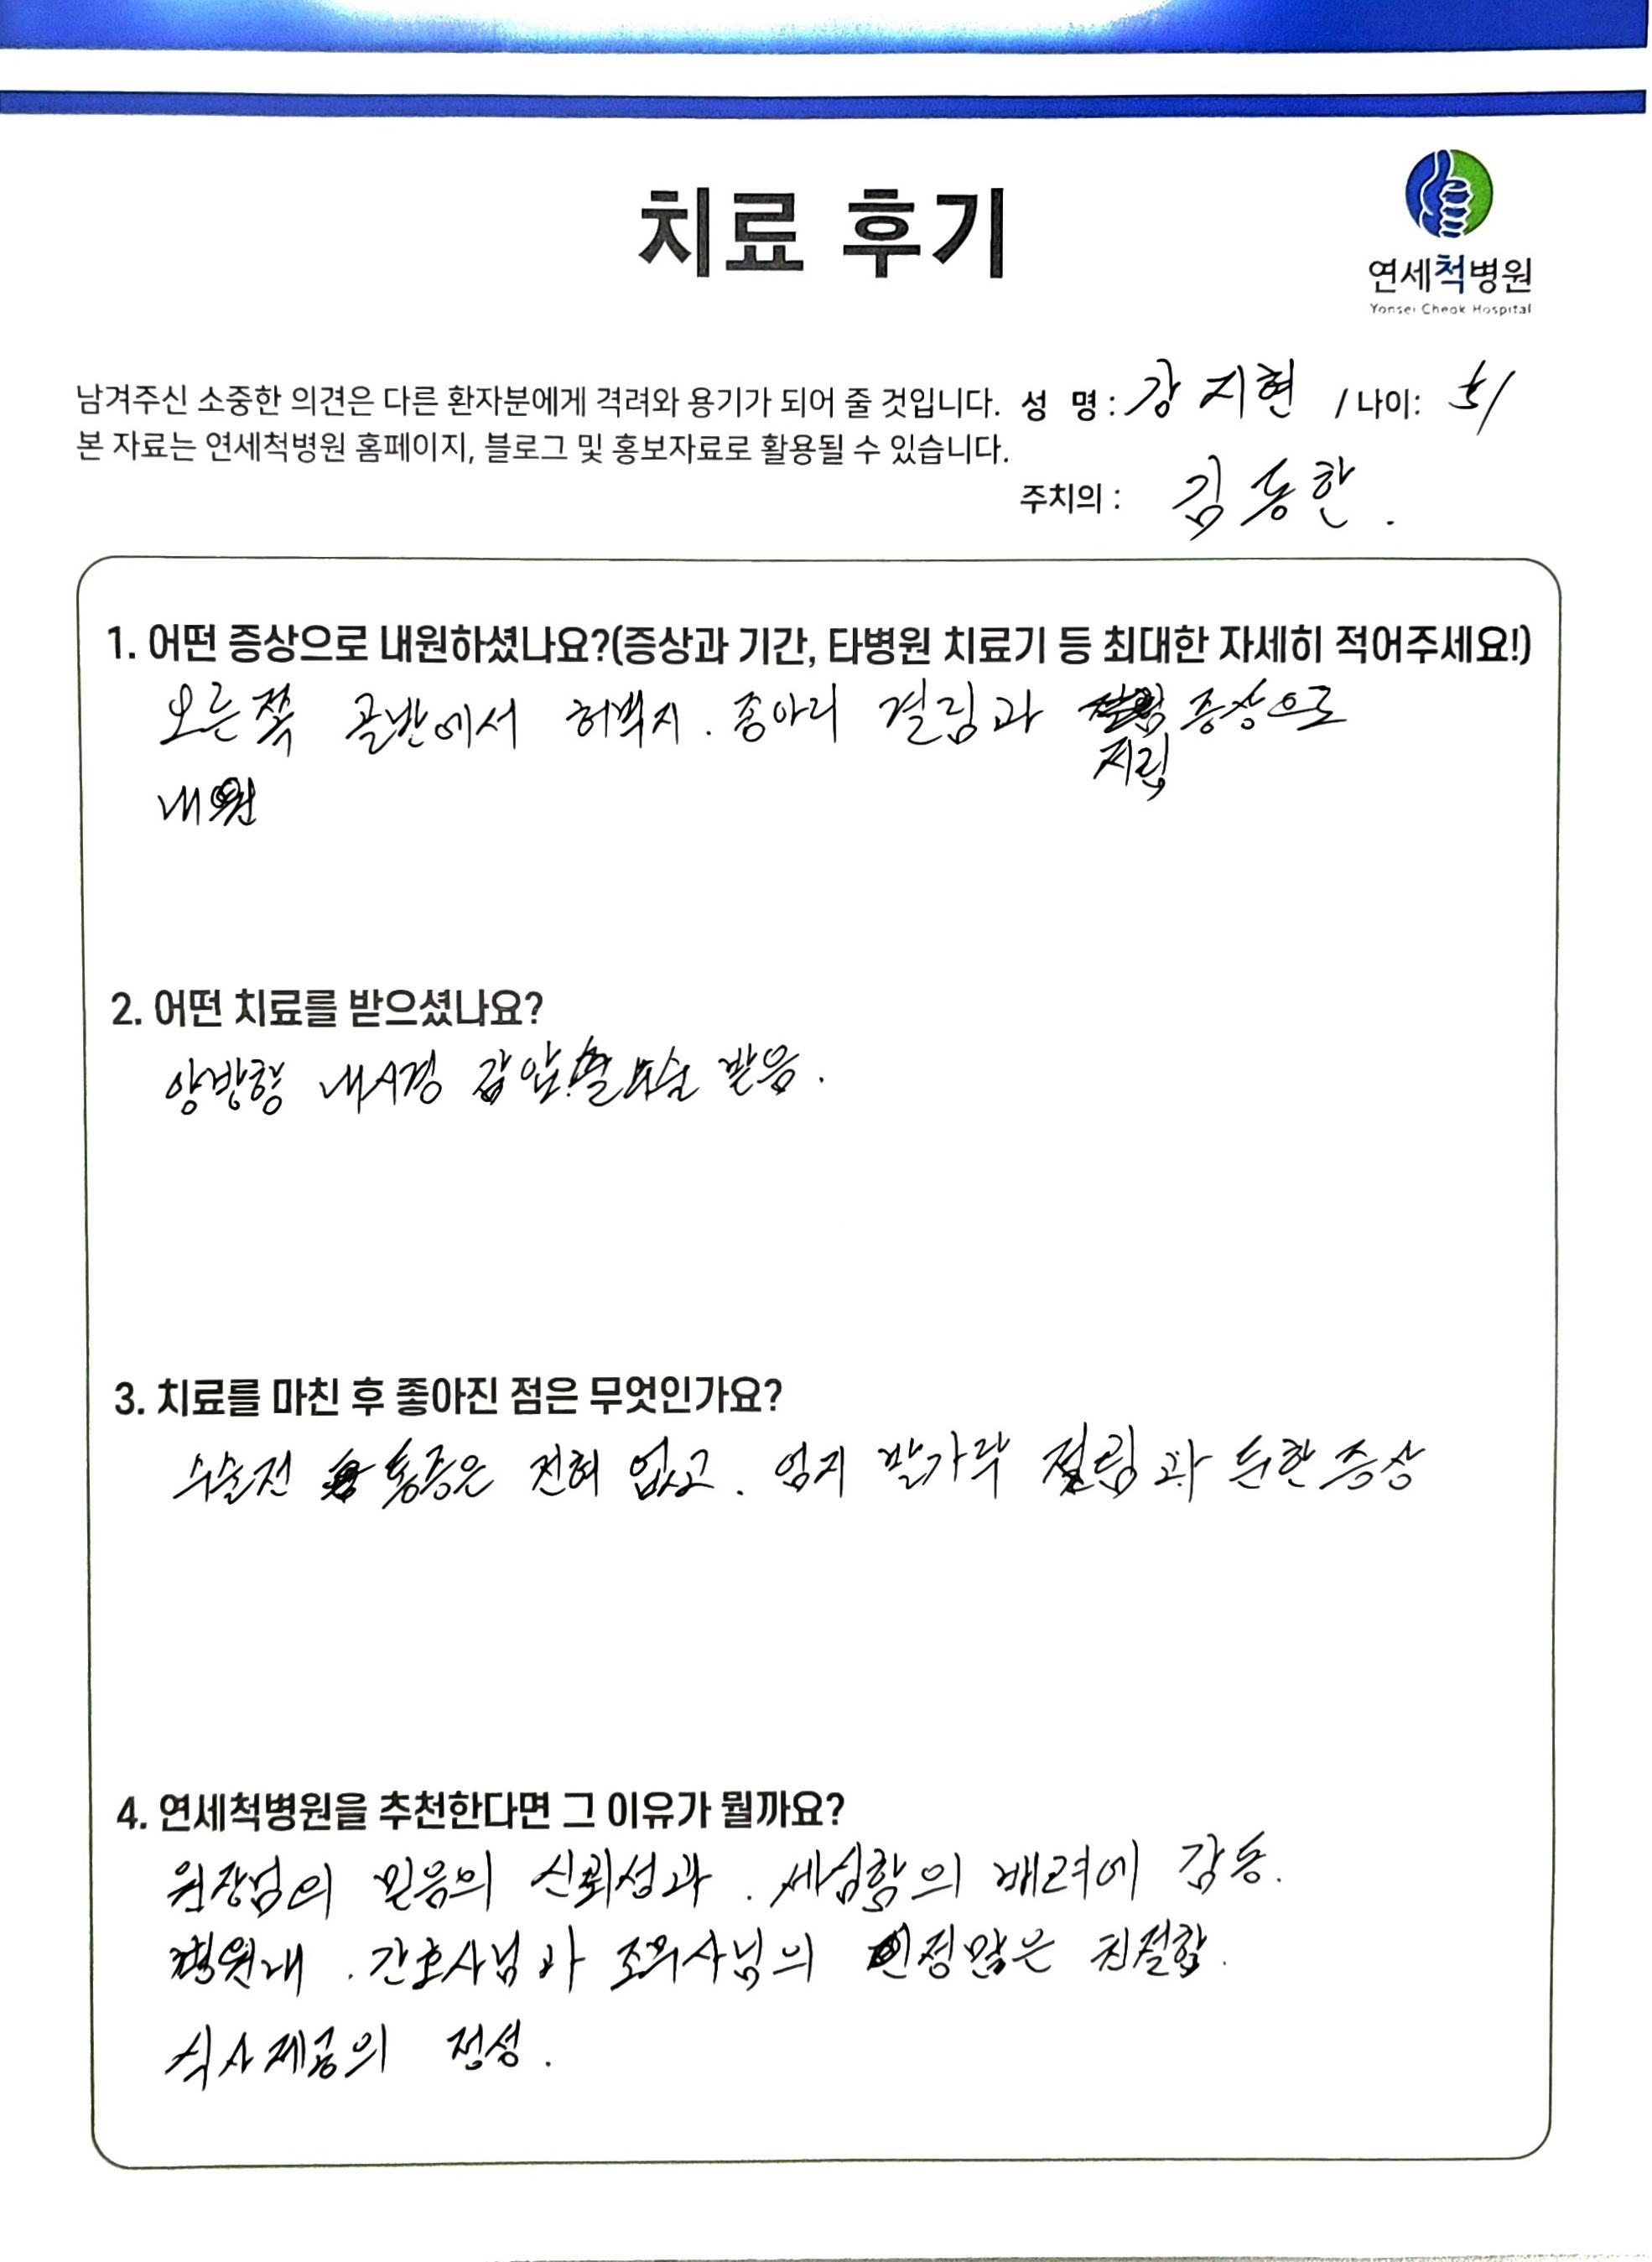 치료 후기
연세척병원
Yonsei Cheok Hospital
남겨주신 소중한 의견은 다른 환자분에게 격려와 용기가 되어 줄 것입니다. 성 명 : 강지현 / 나이: 51
본 자료는 연세척병원 홈페이지, 블로그 및 홍보자료로 활용될 수 있습니다.
주치의 : 김동한.
1. 어떤 증상으로 내원하셨나요?(증상과 기간, 타병원 치료기 등 최대한 자세히 적어주세요!)
오른쪽 골반에서 허벅지. 종아리 결림과 증상으로
저림
내원
2. 어떤 치료를 받으셨나요?
양방향 내시경 감압술 받음.
3. 치료를 마친 후 좋아진 점은 무엇인가요?
수술전 통증은 전혀 없고. 엄지 발가락 절림과 둔한증상
4. 연세척병원을 추천한다면 그 이유가 뭘까요?
원장님의 믿음의 신뢰성과. 세심함의 배려에 감동.
병원내. 간호사님과 조무사님의 인정많은 친절함.
식사제공의 정성.